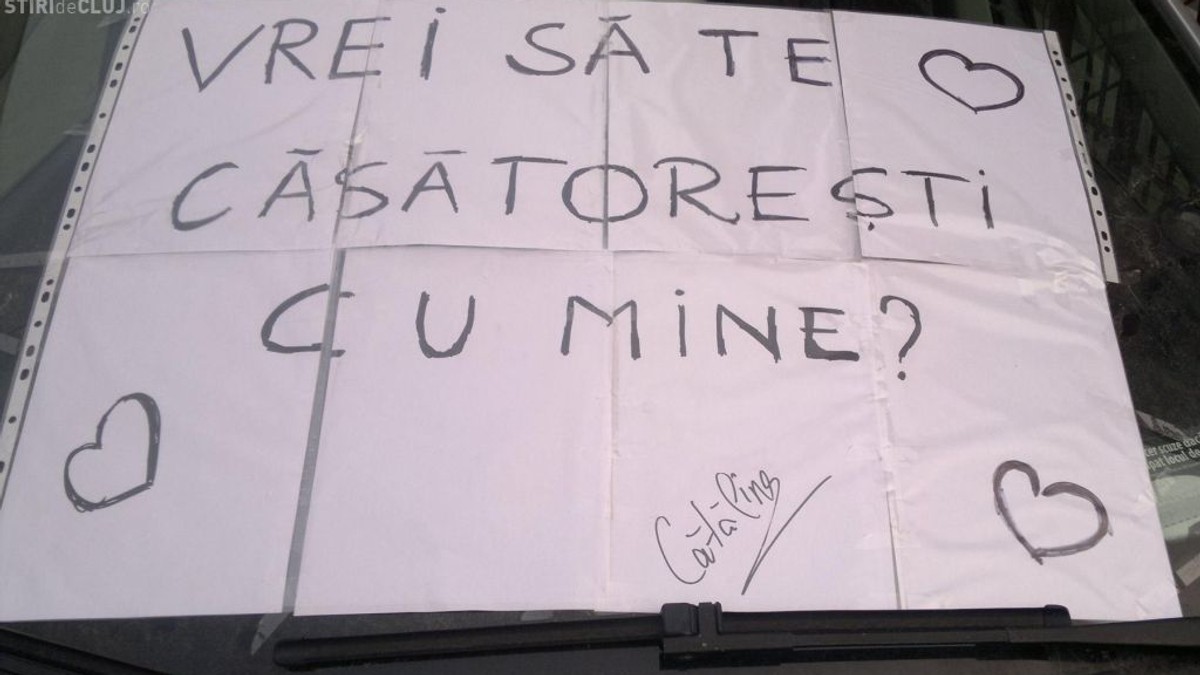 STIRIdeCLUJ.ro
VREI SĂ TE
CĂSĂTOREȘTI
CU MINE?
Cătălina